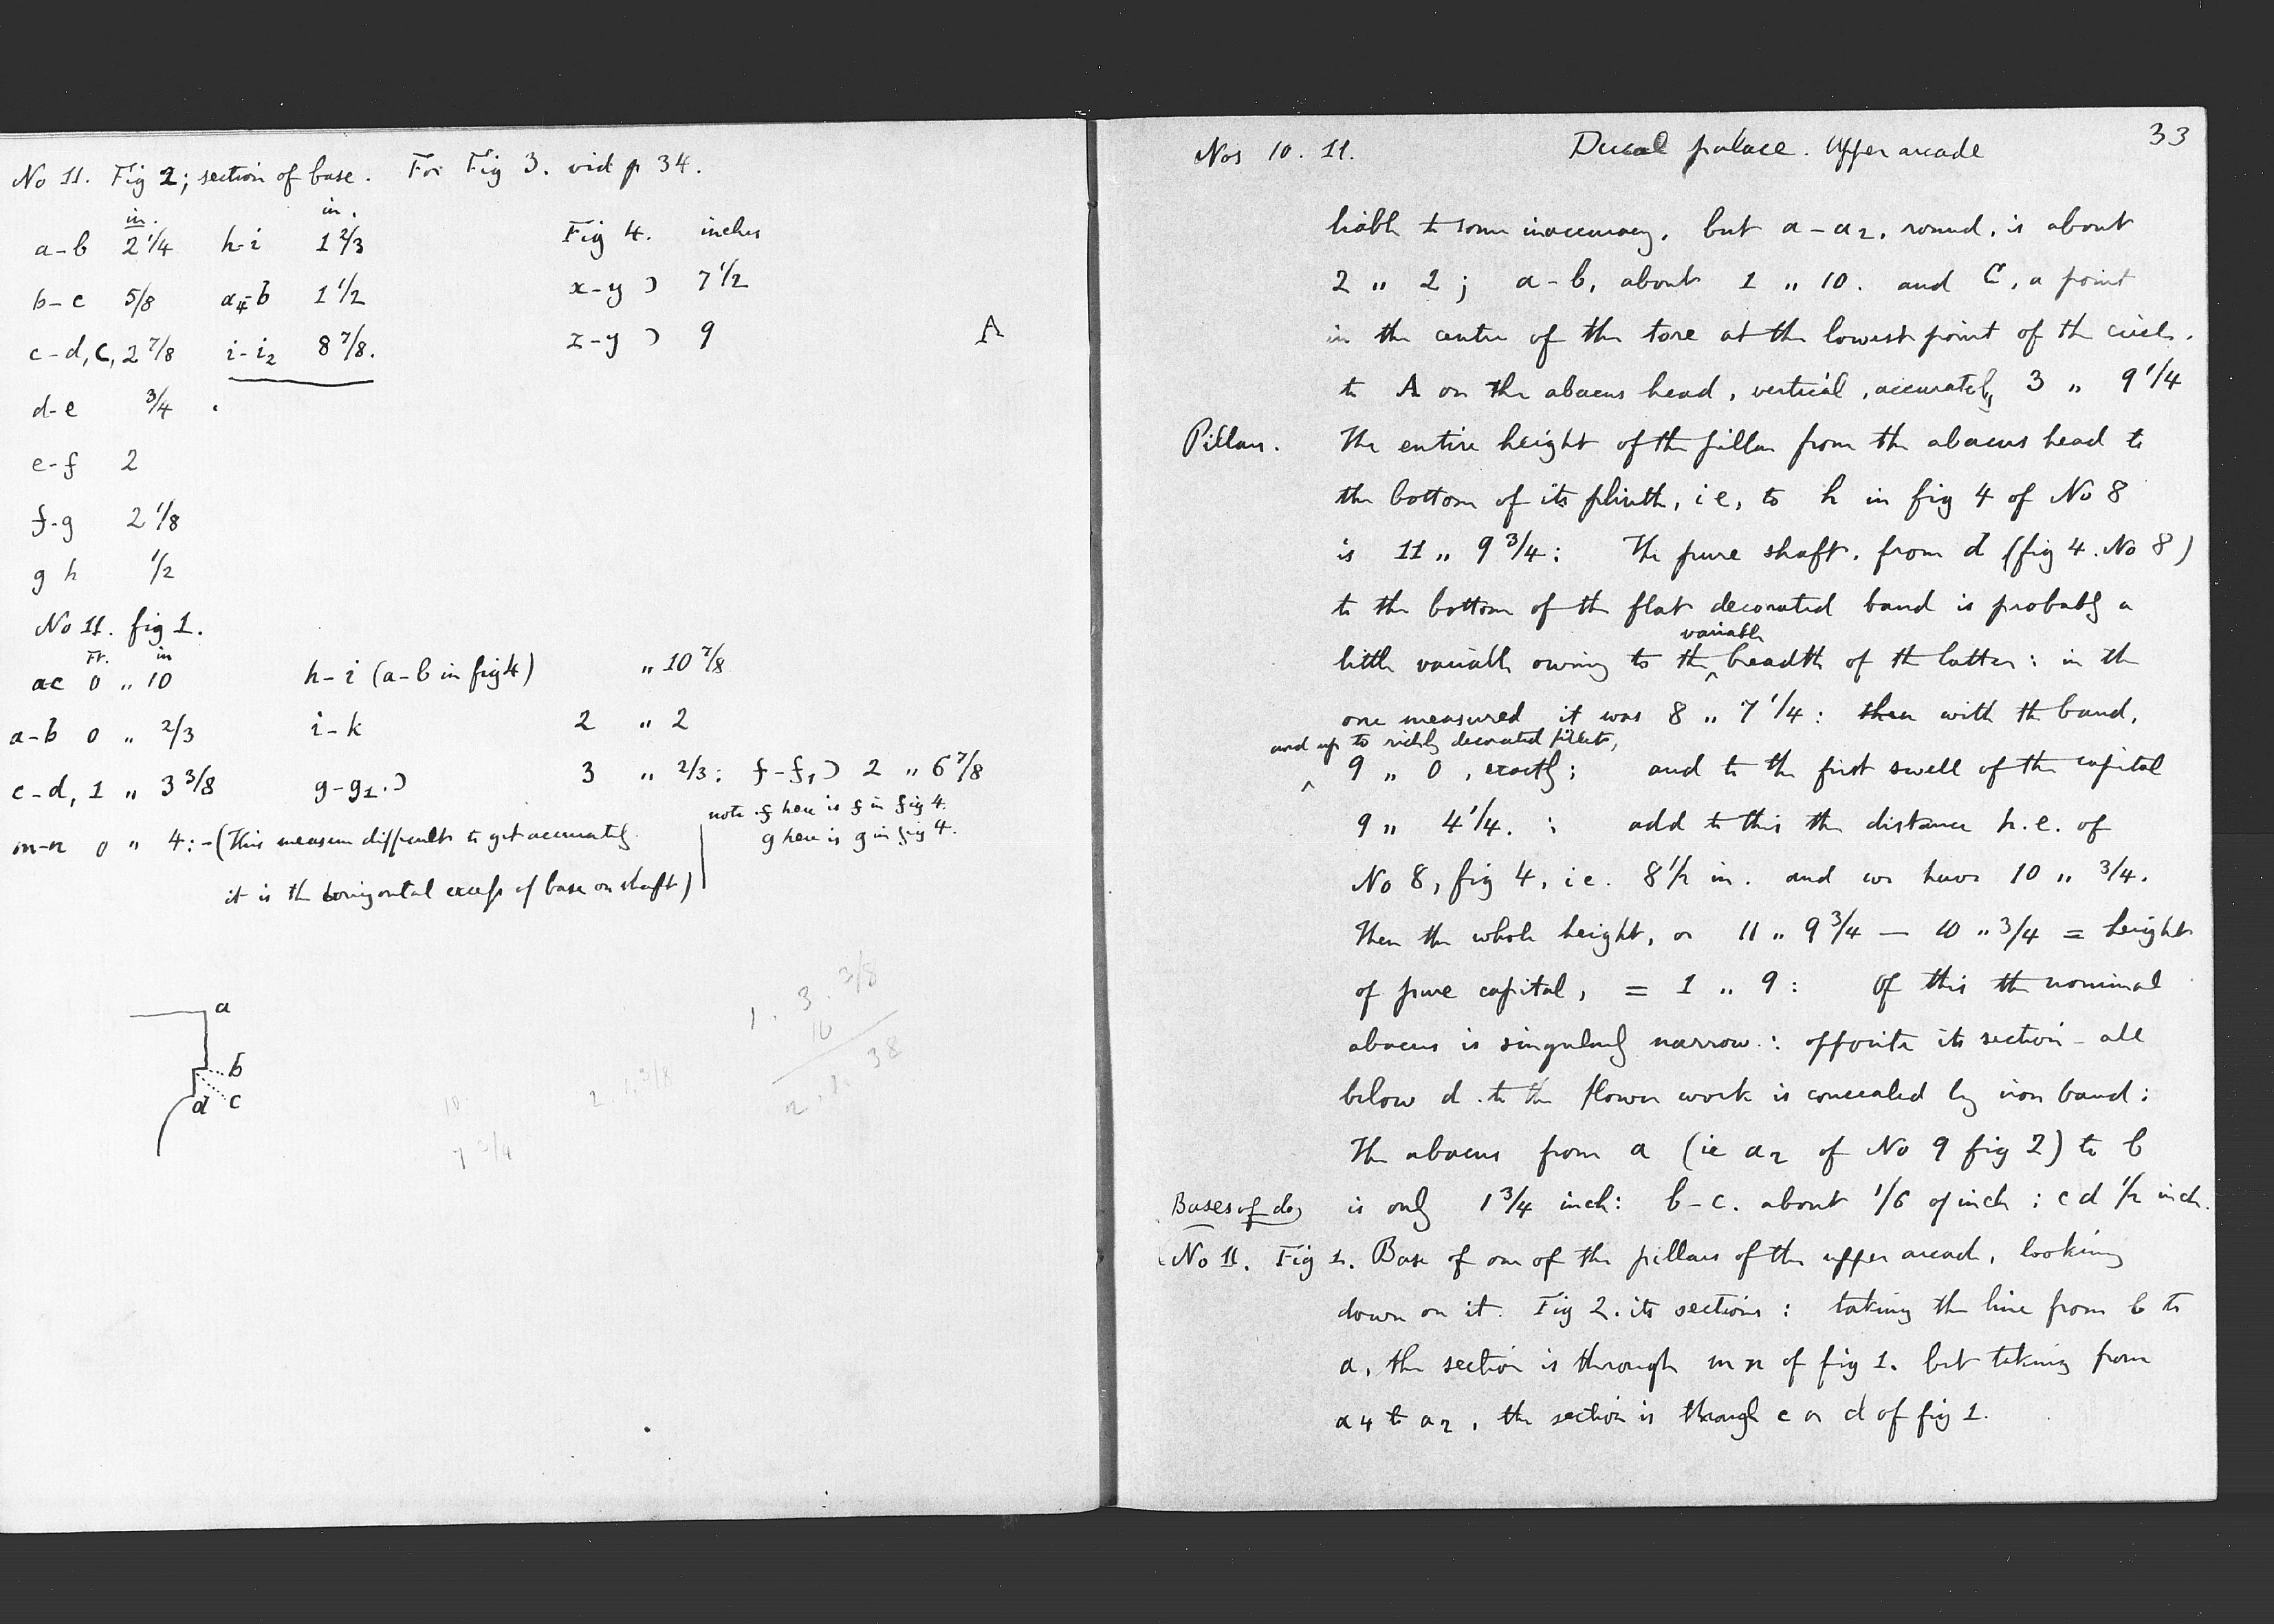 No 11. Fig 2; section of base. For Fig 3. vid p 34.
in. in.
a-b 2 1/4 h-i 1 2/3 Fig 4. inches
b-c 5/8 a4-b 1 1/2 x-y ) 7 1/2
c-d, C, 2 7/8 i-i2 8 7/8. x-y ) 9 A
d-e 3/4 .
e-f 2
f-g 2 1/8
g h 1/2
No 11. fig 1.
Ft. in
ac 0 " 10 h-i (a-b in fig 4) " 10 7/8
a-b 0 " 2/3 i-k 2 " 2
c-d, 1 " 3 3/8 g-g1.) 3 " 2/3: f-f1) 2 " 6 7/8
note f here is f in fig 4.
g here is g in fig 4.
m-n 0 " 4:-(This measure difficult to get accurately
it is the horizontal excess of base on shaft)
1. 3. 3/8
10
2. 1. 38
2. 1. 3/8
10
7 3/4
a
b
d c
33
Nos 10. 11. Ducal palace. Upper arcade
liable to some inaccuracy, but a-a2, round, is about
2 " 2; a-b, about 1 " 10. and C, a point
in the centre of the tore at the lowest point of the circle.
to A on the abacus head, vertical, accurately 3 " 9 1/4
Pillars. The entire height of the pillar from the abacus head to
the bottom of its plinth, ie, to h in fig 4 of No 8
is 11 " 9 3/4: The pure shaft, from d (fig 4. No 8)
to the bottom of the flat decorated band is probably a
variable
little variable owing to the ^ breadth of the latter: in the
one measured it was 8 " 7 1/4: then with the band,
and up to richly decorated fillets,
^ 9 " 0, exactly; and to the first swell of the capital
9 " 4 1/4. : add to this the distance h.e. of
No 8, fig 4, ie. 8 1/2 in. and we have 10 " 3/4.
Then the whole height, or 11 " 9 3/4 — 10 " 3/4 = height
of pure capital, = 1 " 9: Of this the nominal
abacus is singularly narrow: opposite its section - all
below d. to the flower work is concealed by iron band:
The abacus from a (ie a2 of No 9 fig 2) to b
Bases of do, is only 1 3/4 inch: b-c. about 1/6 of inch; c d 1/2 inch.
No 11. Fig 1. Base of one of the pillars of the upper arcade, looking
down on it. Fig 2. its sections: taking the line from b to
a, the section is through m n of fig 1. but taking from
a4 to a2, the section is through c or d of fig 1.